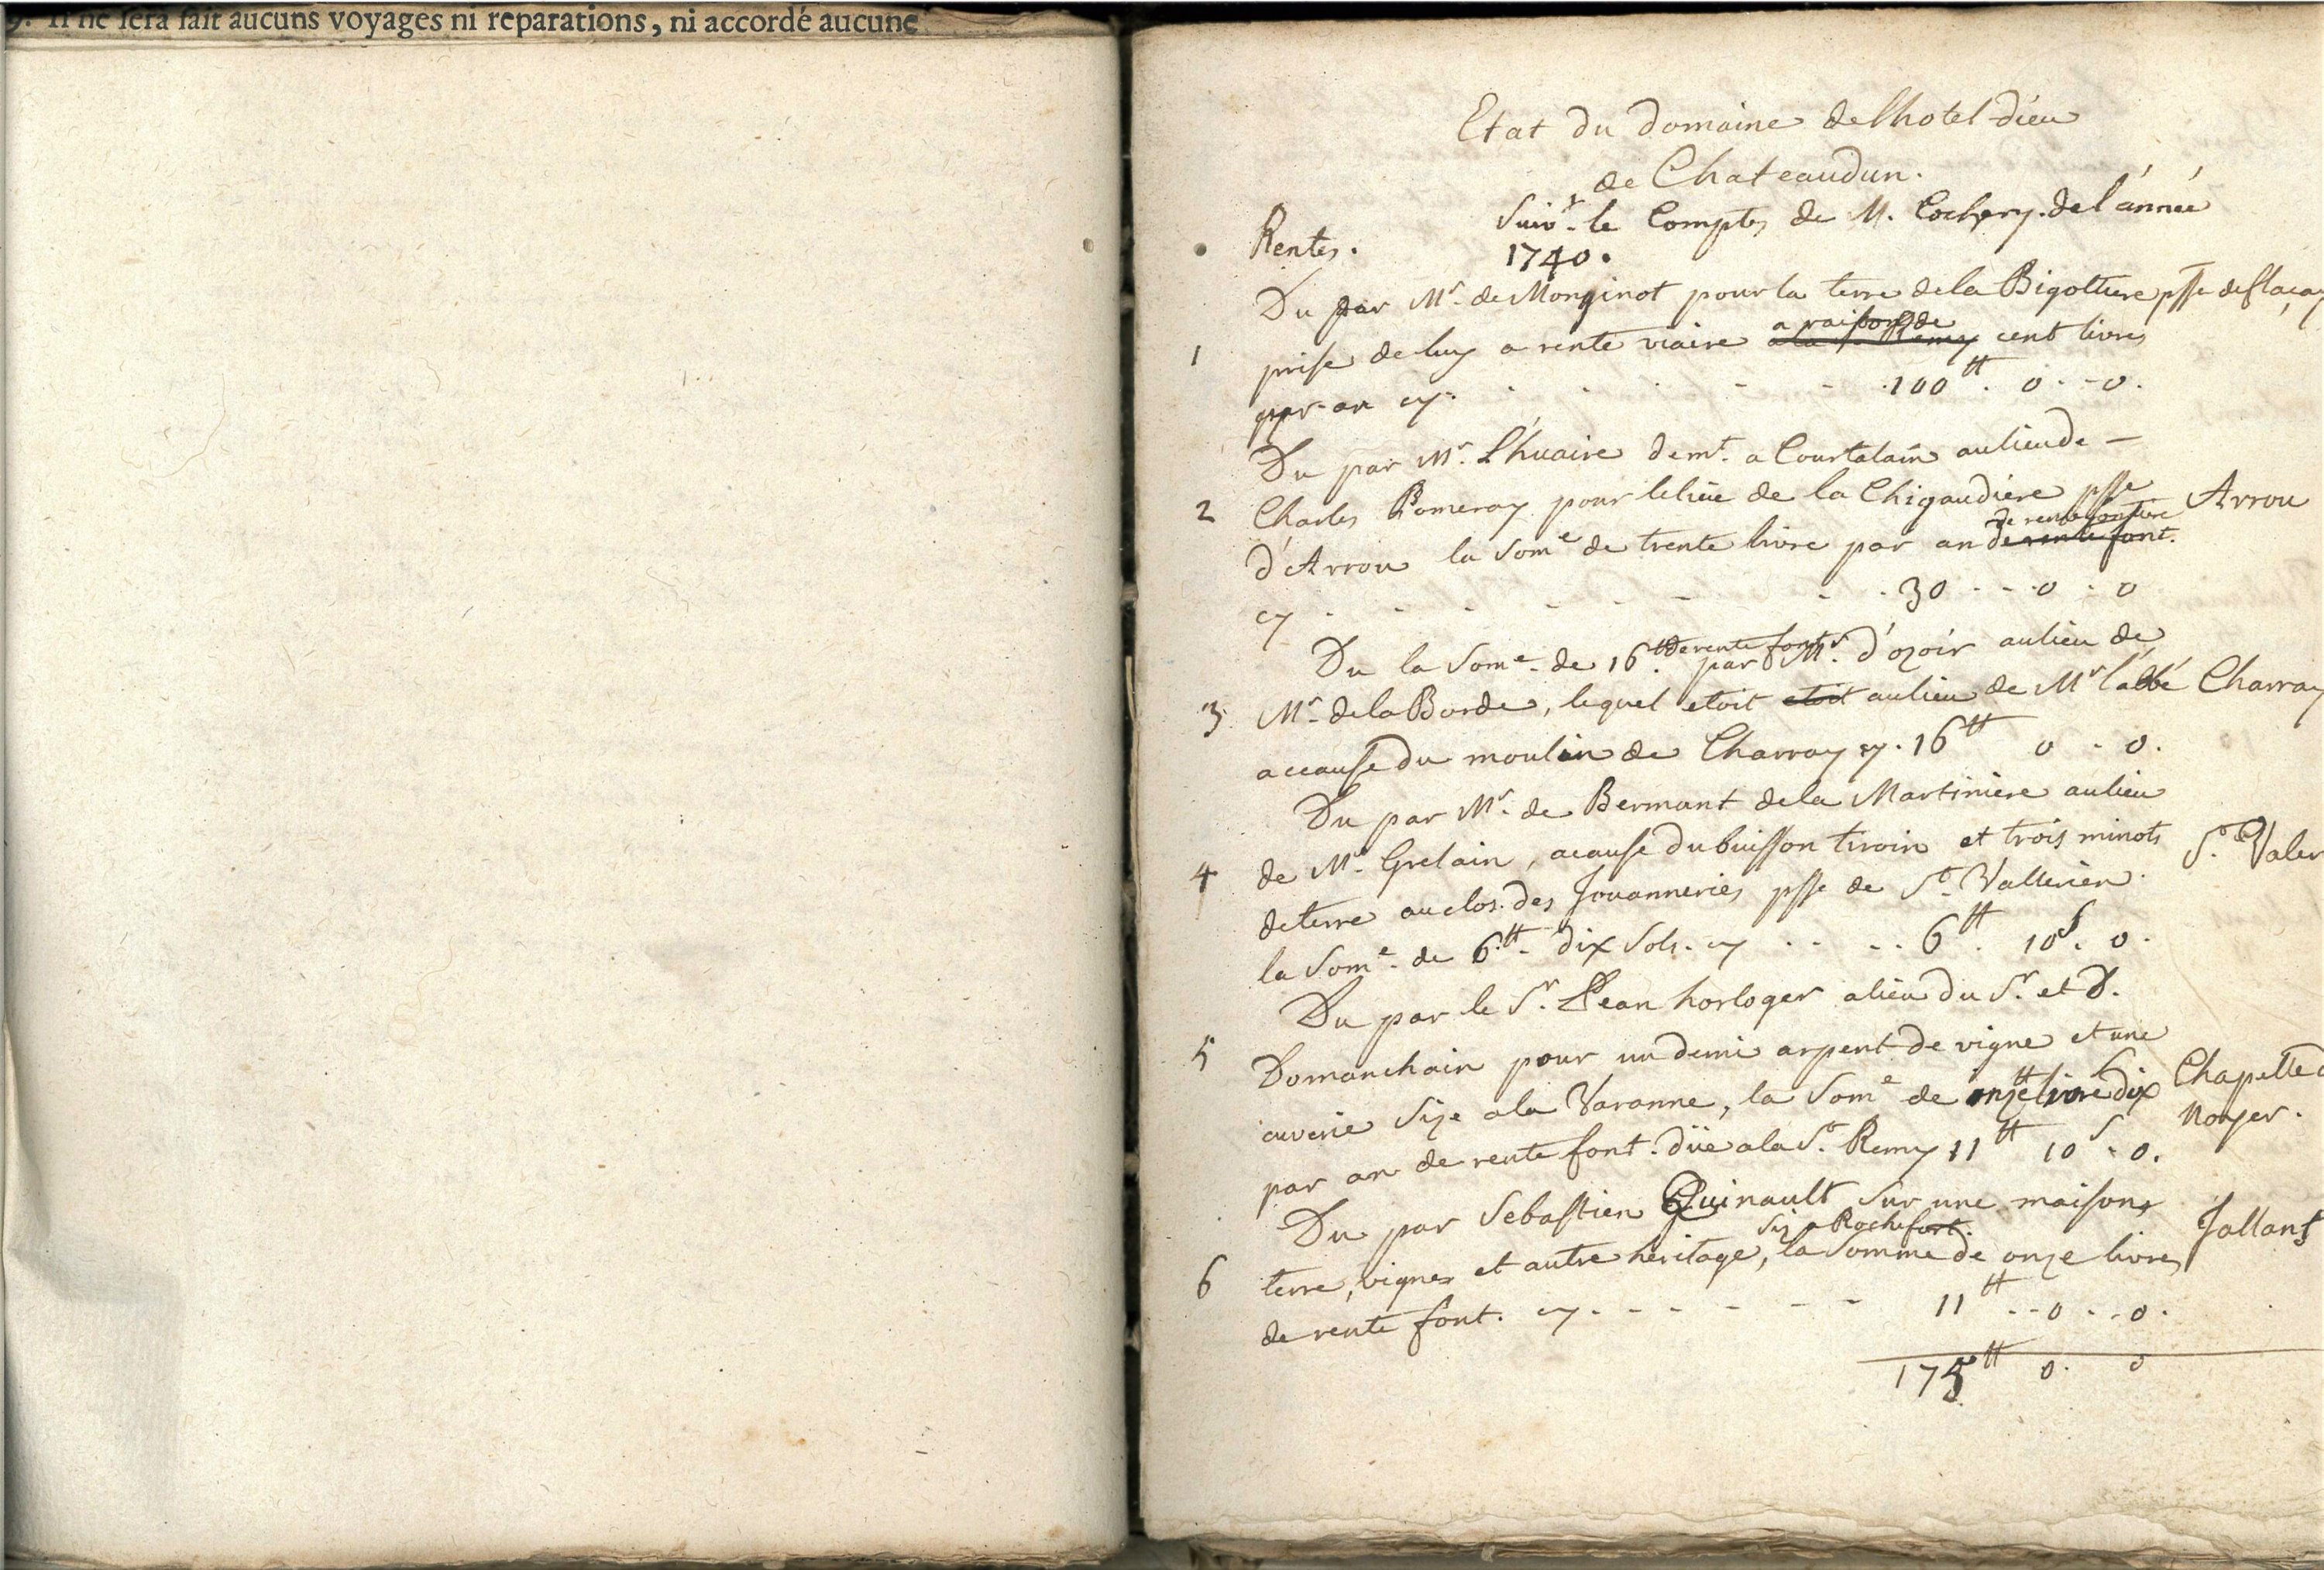 9. Il ne sera fait aucuns voyages ni reparations, ni accordé aucune
Etat du domaine de lhotel-dieu
de Chateaudun.
Suivt. le Comptes de M. Cochery. de l'année
Rentes. 1740.
Du par Mr. de Monginot pour la terre de la Bigottiere psse de flaçay
1 prise de luy a rente viaire a raison de cent livres
par an cy. 100 tt. 0. 0.
Du par Mr. L'huaire demt. a Courtalain au lieu de
2 Charles Pomeray pour le lieu de la Chigaudiere psse Arrou
d'Arrou la Some de trente livre par an de rente fontiere
cy 30 0 0
Du la Some. de 16 tt. de rente font. par Mr. d'ozoir au lieu de
3 Mr. de la Borde, lequel etoit au lieu de Mr l'abbé Charray
a cause du moulin de Charray cy. 16 tt 0 0.
Du par Mr. de Bermant de la Martiniere au lieu
4 de Mr. Grelain, a cause du buisson tiroin et trois minots St. Valer
de terre au clos des Jouanneries psse de St. Vallerien.
la Some. de 6 tt. dix Sols. cy 6 tt. 10 s. 0.
Du par le Sr. Jean horloger a lieu du Sr. et d.
5 Domanchain pour un demi arpent de vigne et une
Size a la Varanne, la Some de onze livre dix s Chapelle d
par an de rente font. düe a la St. Remy 11 tt 10 s 0. Noyer.
Du par Sebastien Quinault Sur une maisons
Siz a Rochefort. Jallans
6 terre, vignes et autre heritage, la Somme de onze livres
de rente font. cy. 11 tt 0 0.
175 tt 0. 0